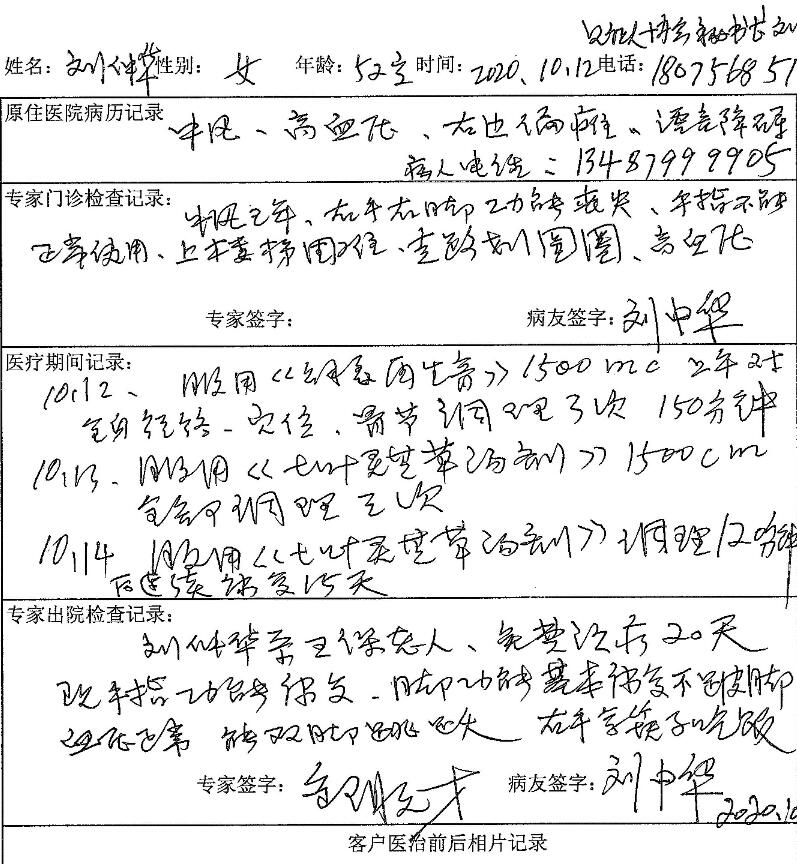 姓名：刘仲华 性别：女 年龄：52岁 时间：2020.10.12 电话：180756851
原住医院病历记录 中风、高血压、右边偏瘫、语言障碍
病人电话：13487999905
专家门诊检查记录：中风三年、右手右脚功能丧失、手指不能
正常使用、上楼梯困难、走路划圆圈、高血压
专家签字： 病友签字：刘中华
医疗期间记录：
10.12、服用《再生膏》1500mc
全身经络、穴位、骨节调理3次 150分钟
10.13、服用《七叶灵芝草汤剂》1500cm
调理三次
10.14 服用《七叶灵芝草汤剂》调理12分钟
后连续恢复15天
专家出院检查记录：
刘仲华 人、免费治疗20天
现手指功能恢复、脚功能基本恢复
血压正常 能双脚 右手拿筷子吃饭
专家签字： 病友签字：刘中华
2020.10
客户医治前后相片记录